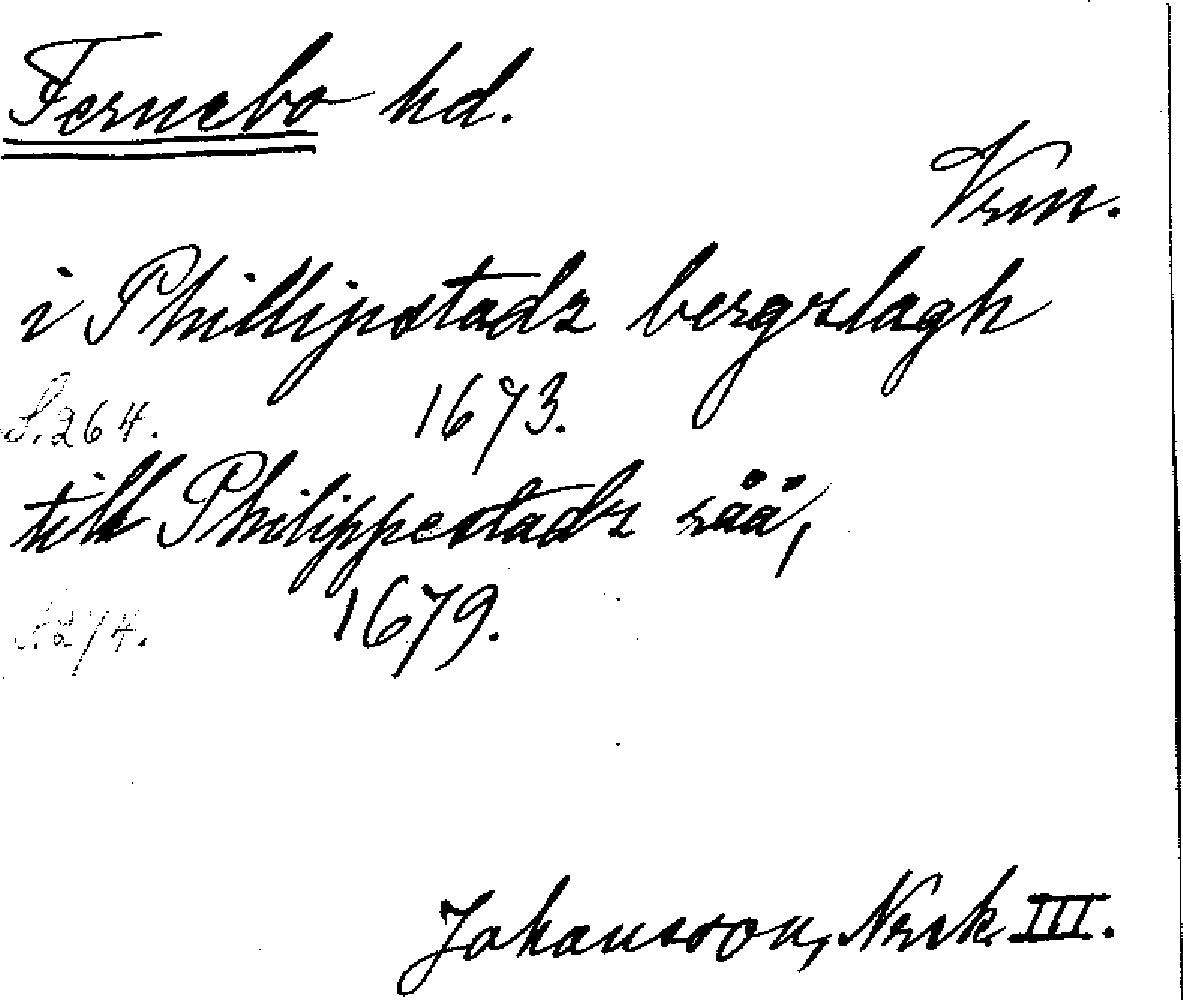 Fernebo hd.
Vrm.
i Phillipstadz bergzlagh
S. 264. 1673.
till Philippestadz råå,
S. 274. 1679.
Johansson, Nrck III.